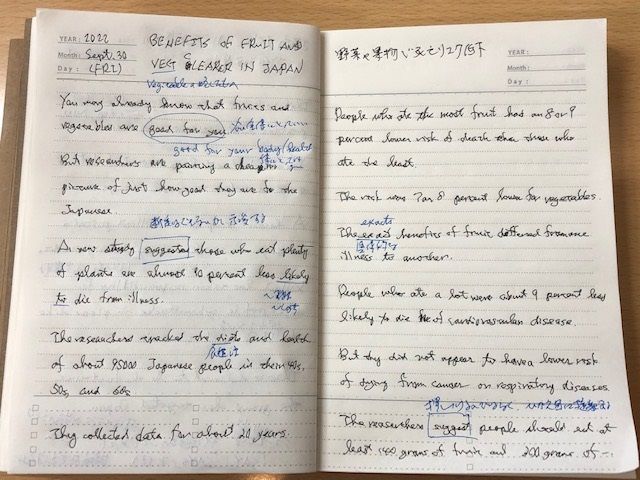 YEAR: 2022
Month: Sept. 30
Day: (FRI)
BENEFITS OF FRUIT AND
VEG CLEARER IN JAPAN
Vegetable
You may already know that fruits and
vegetables are good for you
good for your body/health
But researchers are painting a cleaper
picture of just how good they are to the
Japanese.
A new study suggests those who eat plenty
of plants are almost 10 percent less likely
to die from illness.
The researchers tracked the diet and health
食生活
of about 95000 Japanese people in their 40s,
50s, and 60s
They collected data for about 20 years.
野菜や果物で死亡リスク低下
YEAR:
Month:
Day:
People who ate the most fruit has an 8 or 9
percent lower risk of death than those who
ate the least.
The risk was 7 or 8 percent lower for vegetables.
exacts
The exact benefits of fruit differed from one
具体的な
illness to another.
People who ate a lot were about 9 percent less
likely to die of cardiovascular disease.
But they did not appear to have a lower risk
of dying from cancer or respiratory diseases.
The researchers suggest people should eat at
least 140 grams of fruit and 200 grams of